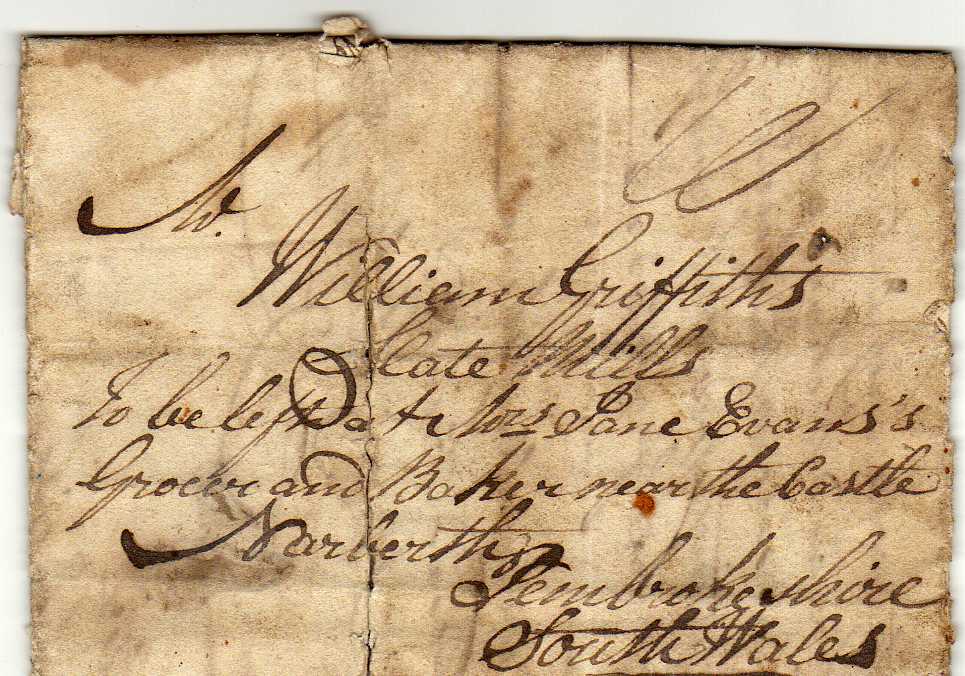 Mr.
William Griffiths
Slate Mills
To be left at Mrs Jane Evans's
Grocer and Baker near the Castle
Narberth
Pembrokeshire
South Wales